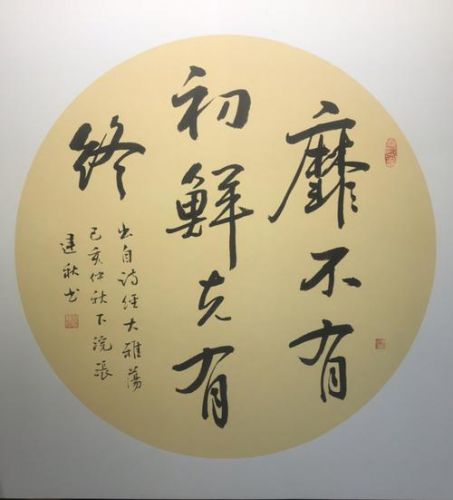 靡不有
初鮮克有
終
出自诗经大雅蕩
己亥仲秋下浣張
建秋书